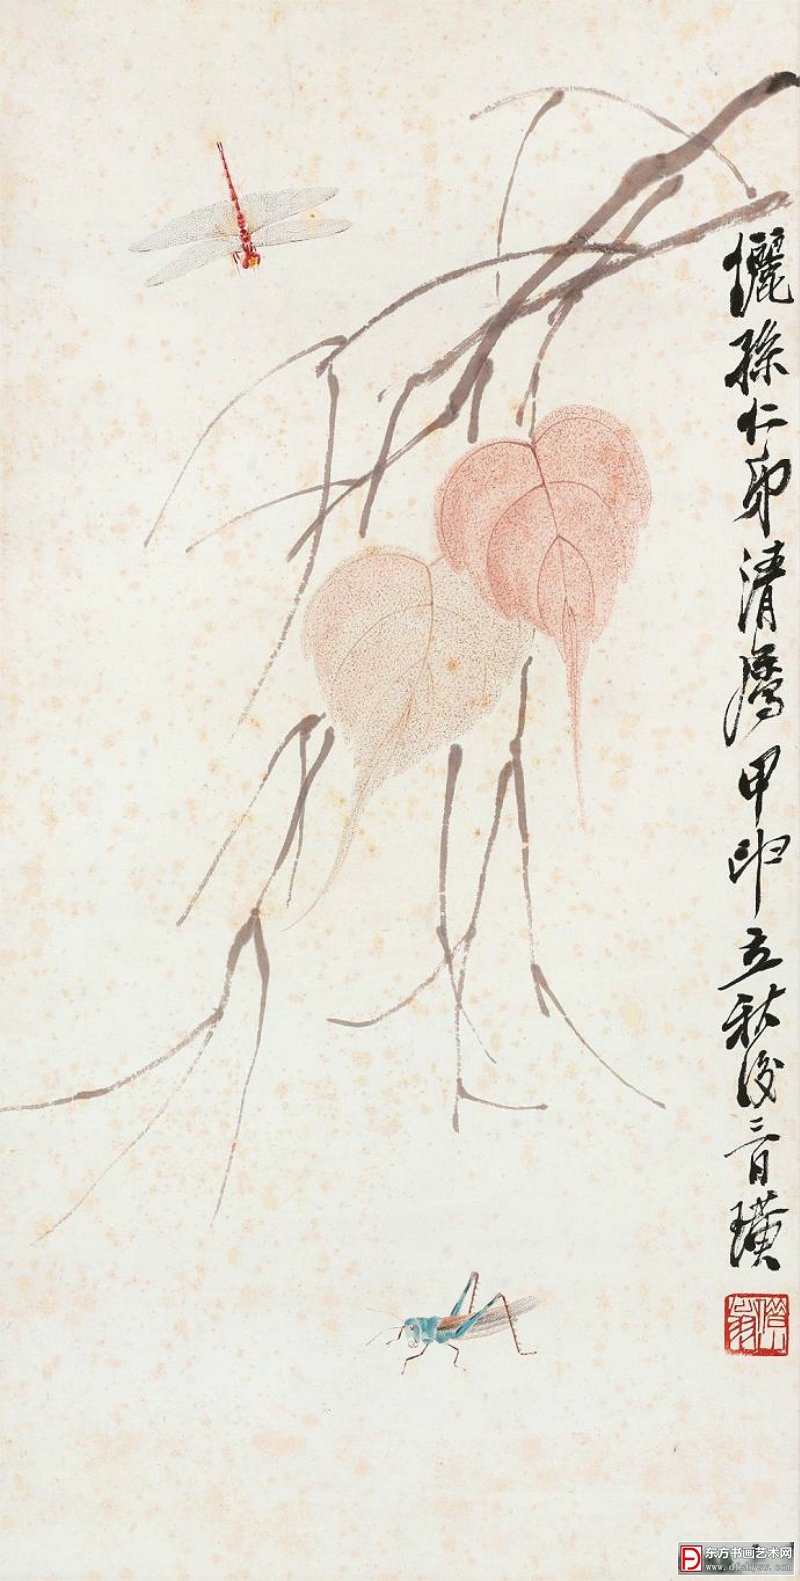 儷孫仁弟清属甲申立秋後三日璜
東方书画艺术网
www.dfshysw.com